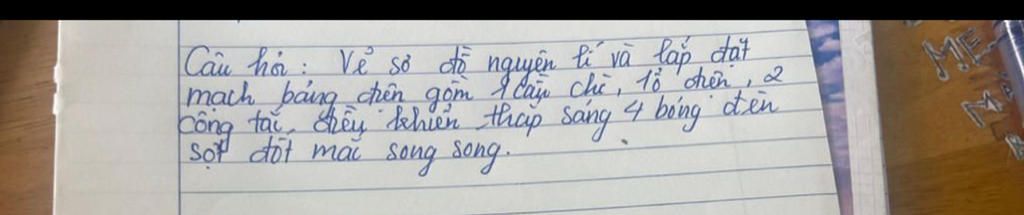 Câu hỏi : Vẽ sơ đồ nguyên lí và lắp đặt
mạch bảng điện gồm 1 cầu chì, 1ổ điện, 2
công tắc, điều khiển thắp sáng 4 bóng đèn
sợi đốt mắc song song.
ME